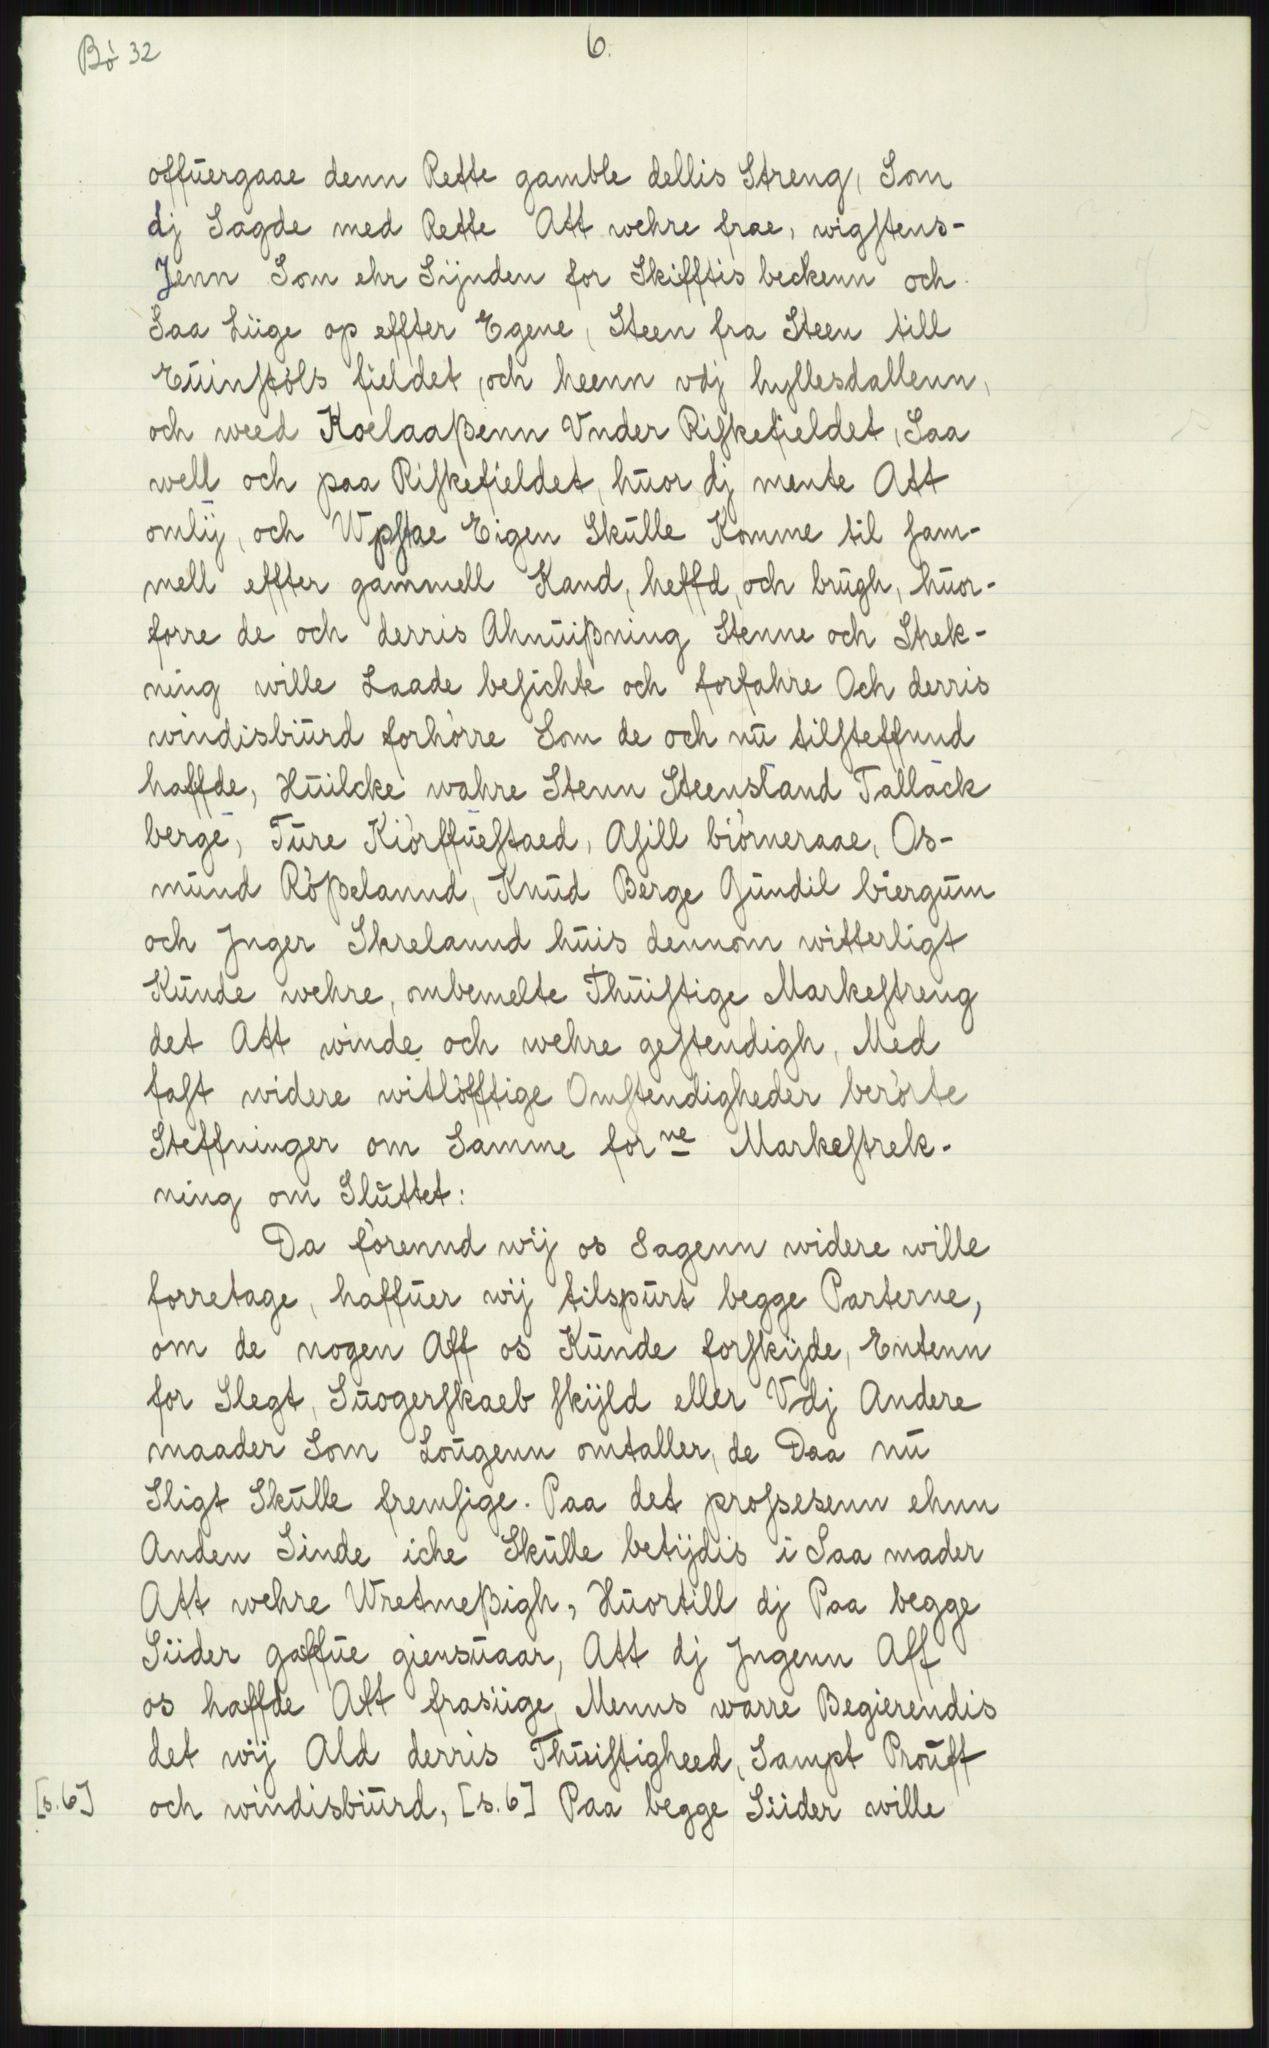 Bö 32
6.
offuergaae denn Rette gamble dellis Streng, Som
dj Sagde med Rette Att wehre frae, wigstens-
Jenn Som ehr Sijnden for Skifftis beckenn och
Saa Liige op effter Egene, Steen fra Steen till
Euinstöls fieldet, och heenn vdj hyllesdallenn,
och weed Koelaaßenn Vnder Riskefieldet, Saa
well och paa Riskefieldet, huor dj mente Att
omlij, och Wpstae Eigen Skulle Komme til sam-
mell effter gammell Kand, heffd, och brugh, huor-
forre de och derris Ahnuißning Stenne och Strek-
ning wille Laade besichte och forfahre Och derris
windisbiurd forhörre Som de och nu tilsteffnnd
haffde, Huilcke wahre Stenn Steensland Tallack
berge, Ture Kiörffuestaed, Asill biörneraae, Os-
mund Rößelannd, Knud Berge Gundil biergum
och Jnger Skrelannd huis dennom witterligt
Kunde wehre, ombemelte Thuistige Markestreng
det Att winde och wehre gestendigh, Med
fast widere witlöfftige Omstendigheder berörte
Steffninger om Samme forne Markestrek-
ning om Sluttet:
Da förennd wij os Sagenn widere wille
forretage, haffuer wij tilspurt begge Parterne,
om de nogen Aff os Kunde forskijde, Entenn
for Slegt, Suogerskaeb skijld eller Vdj Andere
maader Som Lougenn omtaller, de Daa nu
Sligt Skulle fremsige. Paa det prossesenn ehnn
Anden Sinde iche Skulle betijdis i Saa mader
Att wehre Wretmeßigh, Huortill dj Paa begge
Siider gaffue giensuaar, Att dj Jngenn Aff
os haffde Att frasiige, Menns warre Begierendis
det wij Ald derris Thuistigheed, Sampt Prouff
[s.6] och windisbiurd, [s.6] Paa begge Siider wille